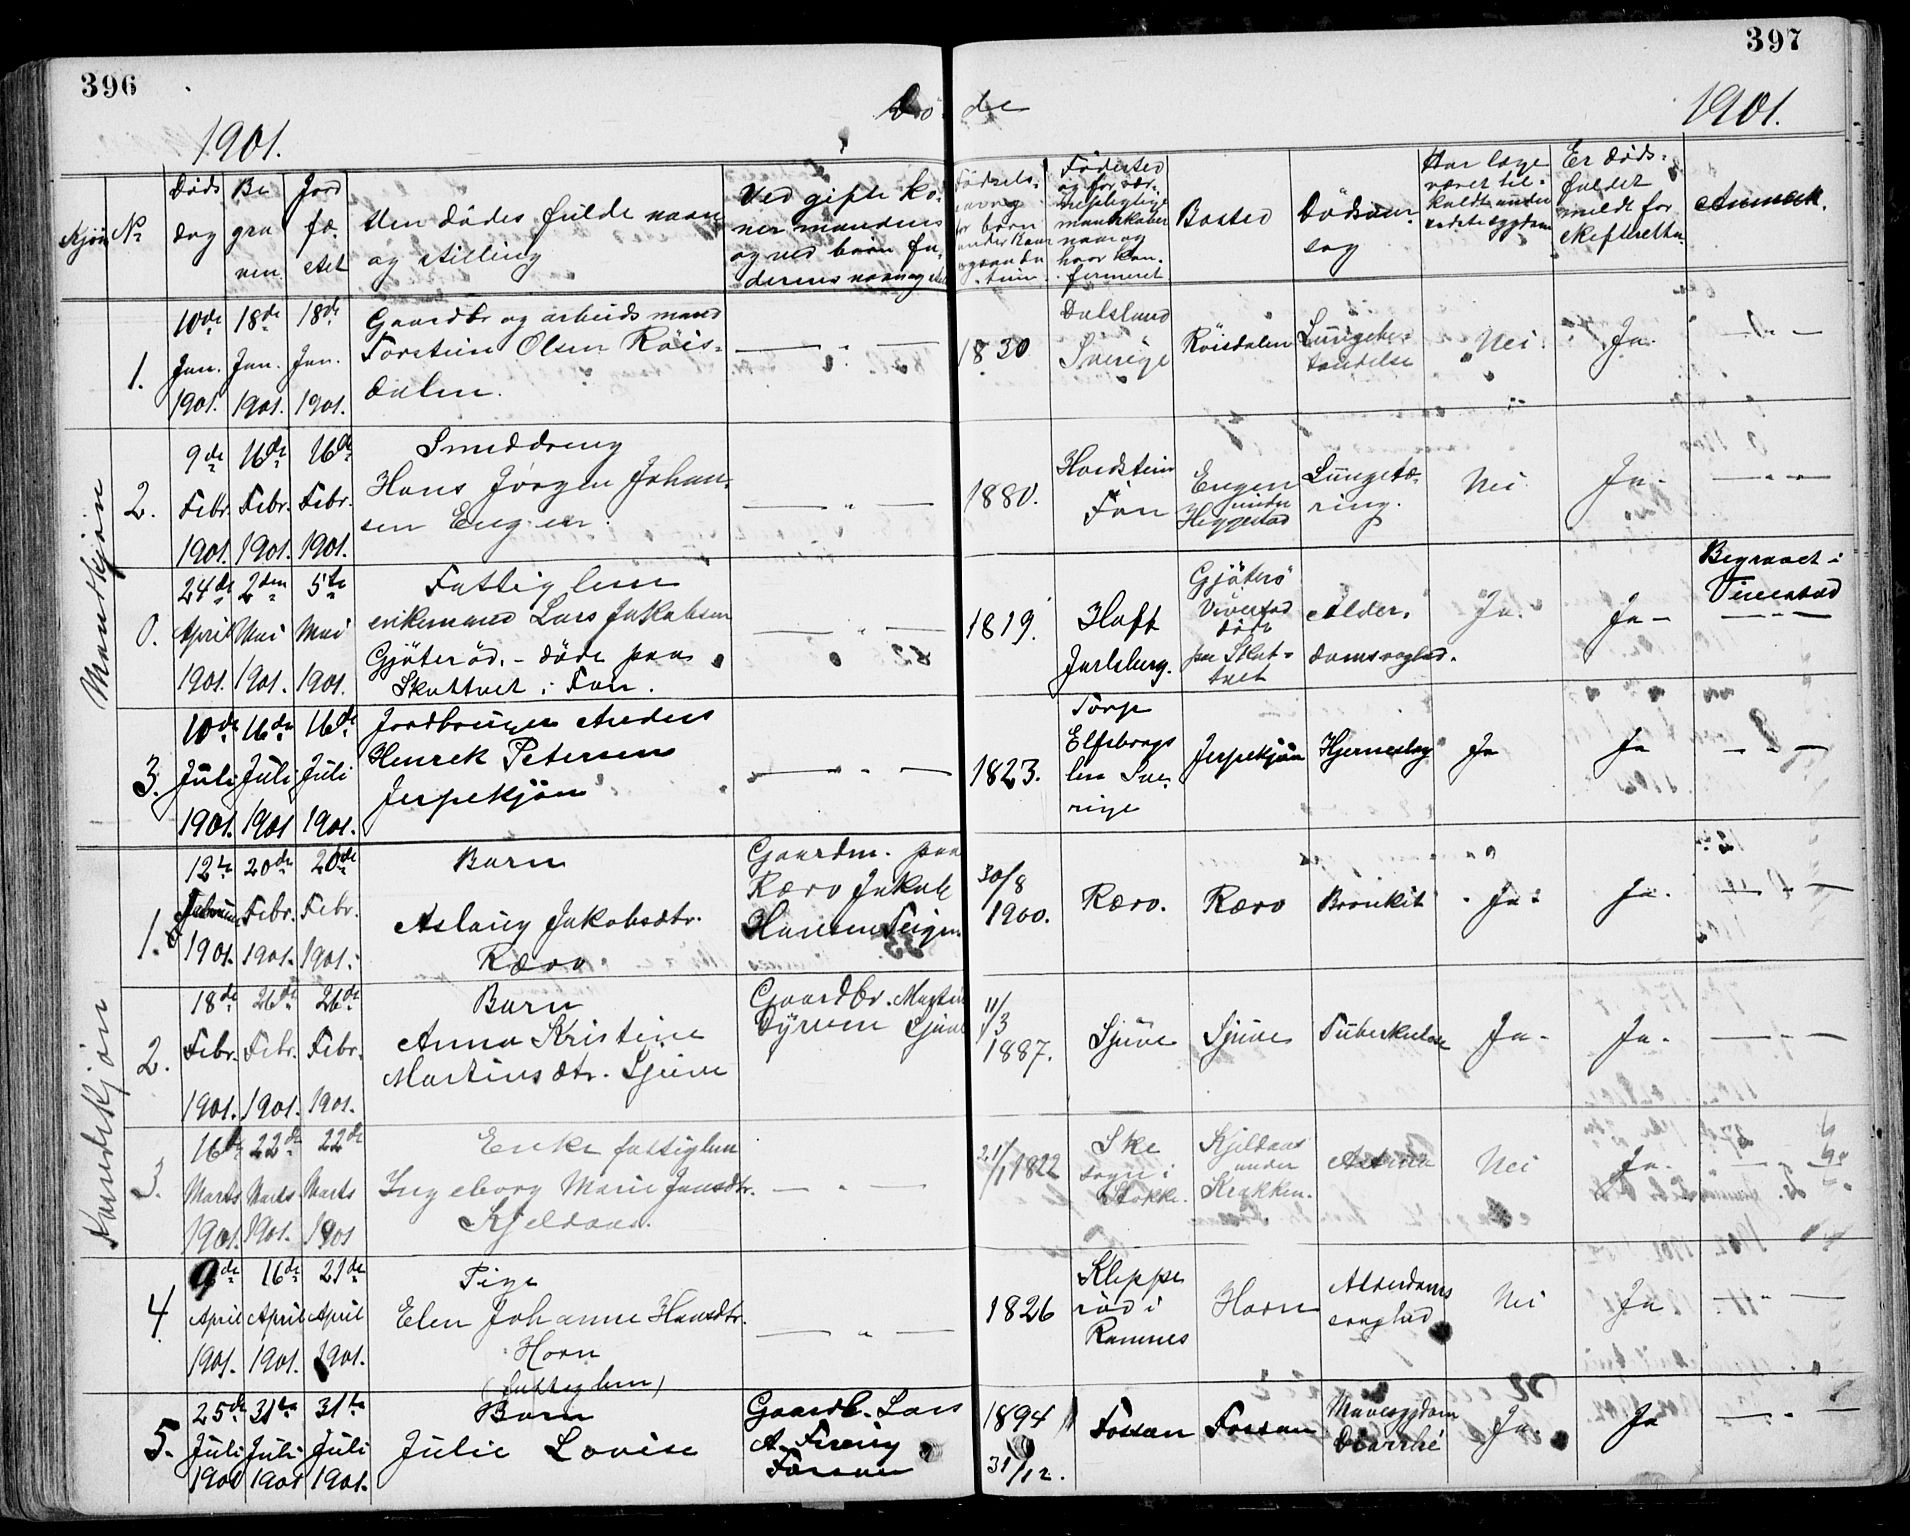 396
397
Dö de
1901.
1901.
Kjön
No
Döds
dag
Be
gra
ven.
Jord
fæ
stet
den dödes fulde navn
og stilling
Ved gifte ko-
ner mandens
og ved börn fa-
derens navn og
Födested
og for vær-
nepligtige
mandskaber
navn og
hvor kon-
firmeret
Bosted
Dödsaar-
sag
Har læge
været til-
kaldt under
sidste sygdom
Er döds-
faldet
meldt for
skifteretten
Anmærk.
Mandkjön
1.
10de
Jan.
1901.
18de
Jan.
1901.
18de
Jan.
1901.
Gaardbr og arbeidsmand
Torstein Olsen Röis-
dalen.
1830
Dalsland
Sverige
Röisdalen
Lungebe-
tændelse
Nei
Ja.
2.
9de
Febr.
1901.
16de
Febr.
1901.
16de
Febr.
1901.
Smeddreng
Hans Jörgen Johan-
sen Engen.
1880.
Hardstein
Fon
Engen
under
Heggestad
Lungetæ-
ring.
Nei
Ja.
0.
24de
April
1901.
2den
Mai
1901.
5te
Mai
1901.
Fattiglem
enkemand Lars Jakobsen
Gjöteröd. - döde paa
Skattvet i Fon.
1819.
Haft
Jarlsberg.
Gjöterö
Vivestad
döde
paa Skat-
tvet
Alder-
domssvaghed.
Ja.
Ja
Begravet i
Vivestad
3.
10de
Juli
1901.
16de
Juli
1901
16de
Juli
1901.
Jordbruger Anders
Henrek Petersen
Jerpekjön
1823.
Torp
Elfsborgs
len Sve-
rige
Jerpekjön
Hjerneslag
Ja
Ja
Kvindekjön
1.
12te
Februar
1901.
20de
Febr.
1901.
20de
Febr.
1901.
Barn
Aslaug Jakobsdtr.
Rævo
Gaardm. paa
Rævo Jakob
Hansen Teigen
30/8
1900.
Rævo.
Rævo
Bronkit
Ja
Ja.
2.
18de
Febr.
1901.
26de
Febr.
1901.
26de
Febr.
1901.
Barn
Anna Kristine
Martinsdtr. Sjuve
Gaardbr. Martin
Sjuve
11/3
1887.
Sjuve
Sjuve
Tuberkulose
Ja.
Ja.
3.
16de
Marts
1901.
22de
Marts
1901.
22de
Marts
1901
Enke fattiglem
Ingeborg Marie Jansdtr.
Kjeldaas.
21/1 1822
Ske
sogn i
Stokke.
Kjeldaas
under
Krakken.
Astma
Nei
Ja.
4.
9de
April
1901.
16de
April
1901.
21de
April
1901.
Pige
Elen Johanne Hansdtr.
Horn
(fattiglem)
1826
Kleppe
röd i
Ramnes
Horn
Alderdoms
svaghed
Nei
Ja
5.
25de
Juli
1901
31te
Juli
1901
31te
Juli
1901.
Barn
Julie Lovise
Gaardb. Lars
A.
Fossan
1894
31/12.
Fossan
Fossan
Mavesygdom
Diarrhé
Ja.
Ja